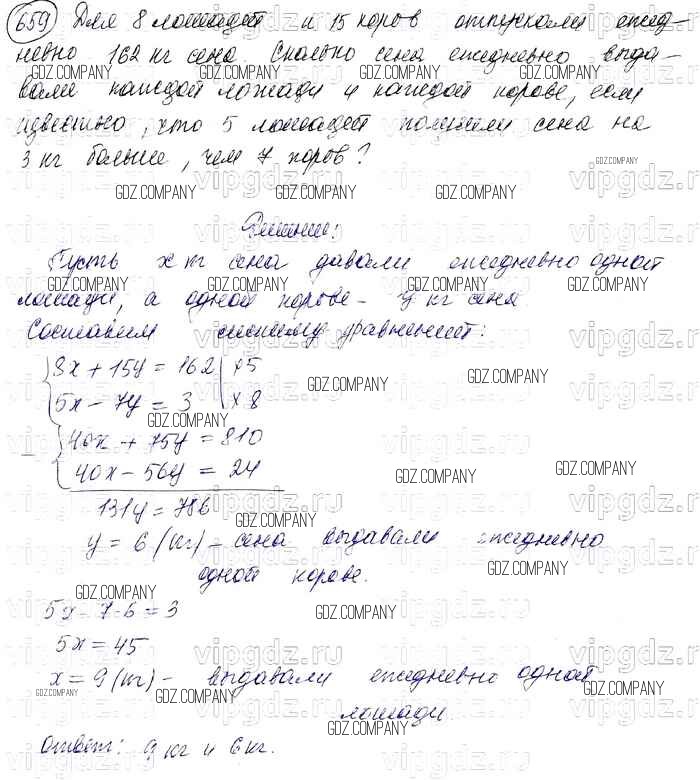 659) Для 8 лошадей и 15 коров отпускали ежед-
невно 162 кг сена. Сколько сена ежедневно выда-
вали каждой лошади и каждой корове, если
известно, что 5 лошадей получали сена на
3 кг больше, чем 7 коров?
Решение:
Пусть x кг сена давали ежедневно одной
лошади, а одной корове - y кг сена
Составим систему уравнений:
8x + 15y = 162 | ×5
5x - 7y = 3 | ×8
40x + 75y = 810
40x - 56y = 24
131y = 786
y = 6 (кг) - сена выдавали ежедневно
одной корове.
5x - 7·6 = 3
5x = 45
x = 9 (кг) - выдавали ежедневно одной
лошади.
Ответ: 9 кг и 6 кг.
GDZ.COMPANY
vipgdz.ru